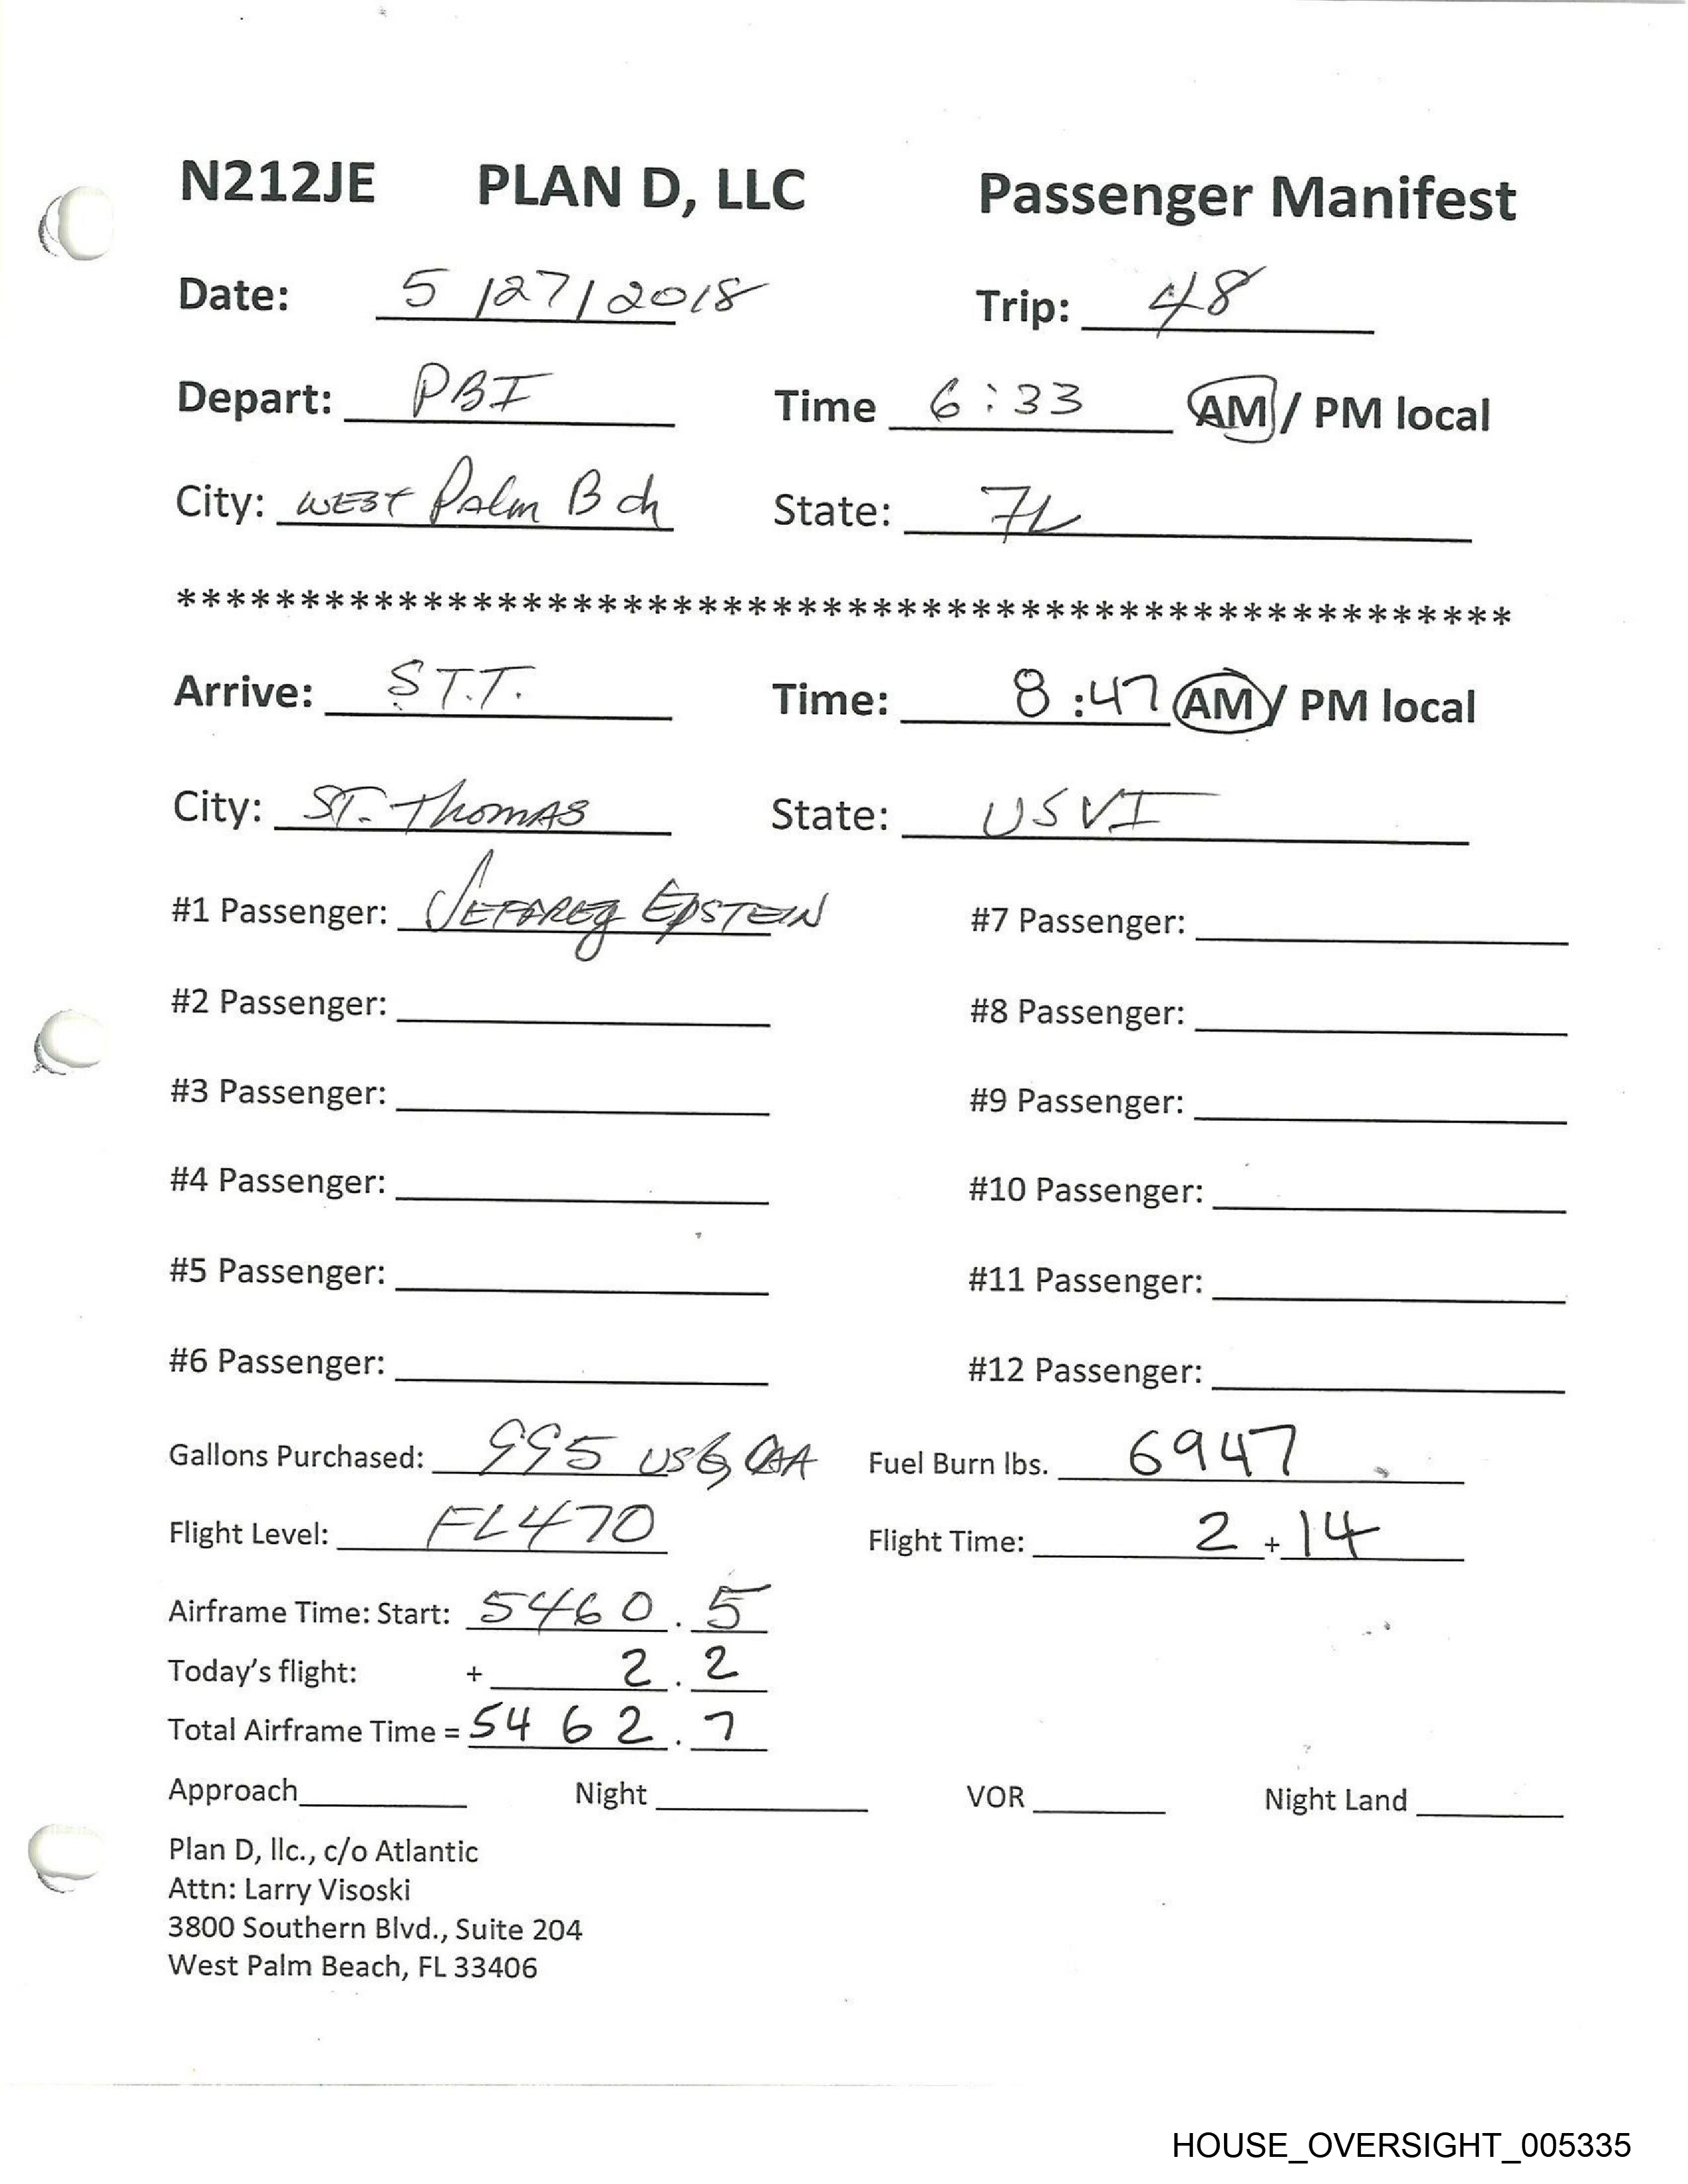 N212JE PLAN D, LLC Passenger Manifest
Date: 5/27/2018 Trip: 48
Depart: PBI Time 6:33 AM / PM local
City: WEST Palm Bch State: FL
******************************************************
Arrive: S T.T. Time: 8:47 AM / PM local
City: ST. Thomas State: USVI
#1 Passenger: JEFFREY EPSTEIN #7 Passenger:
#2 Passenger: #8 Passenger:
#3 Passenger: #9 Passenger:
#4 Passenger: #10 Passenger:
#5 Passenger: #11 Passenger:
#6 Passenger: #12 Passenger:
Gallons Purchased: 995 USG Fuel Burn lbs. 6947
Flight Level: FL470 Flight Time: 2 + 14
Airframe Time: Start: 5460.5
Today's flight: + 2.2
Total Airframe Time = 5462.7
Approach Night VOR Night Land
Plan D, llc., c/o Atlantic
Attn: Larry Visoski
3800 Southern Blvd., Suite 204
West Palm Beach, FL 33406
HOUSE_OVERSIGHT_005335